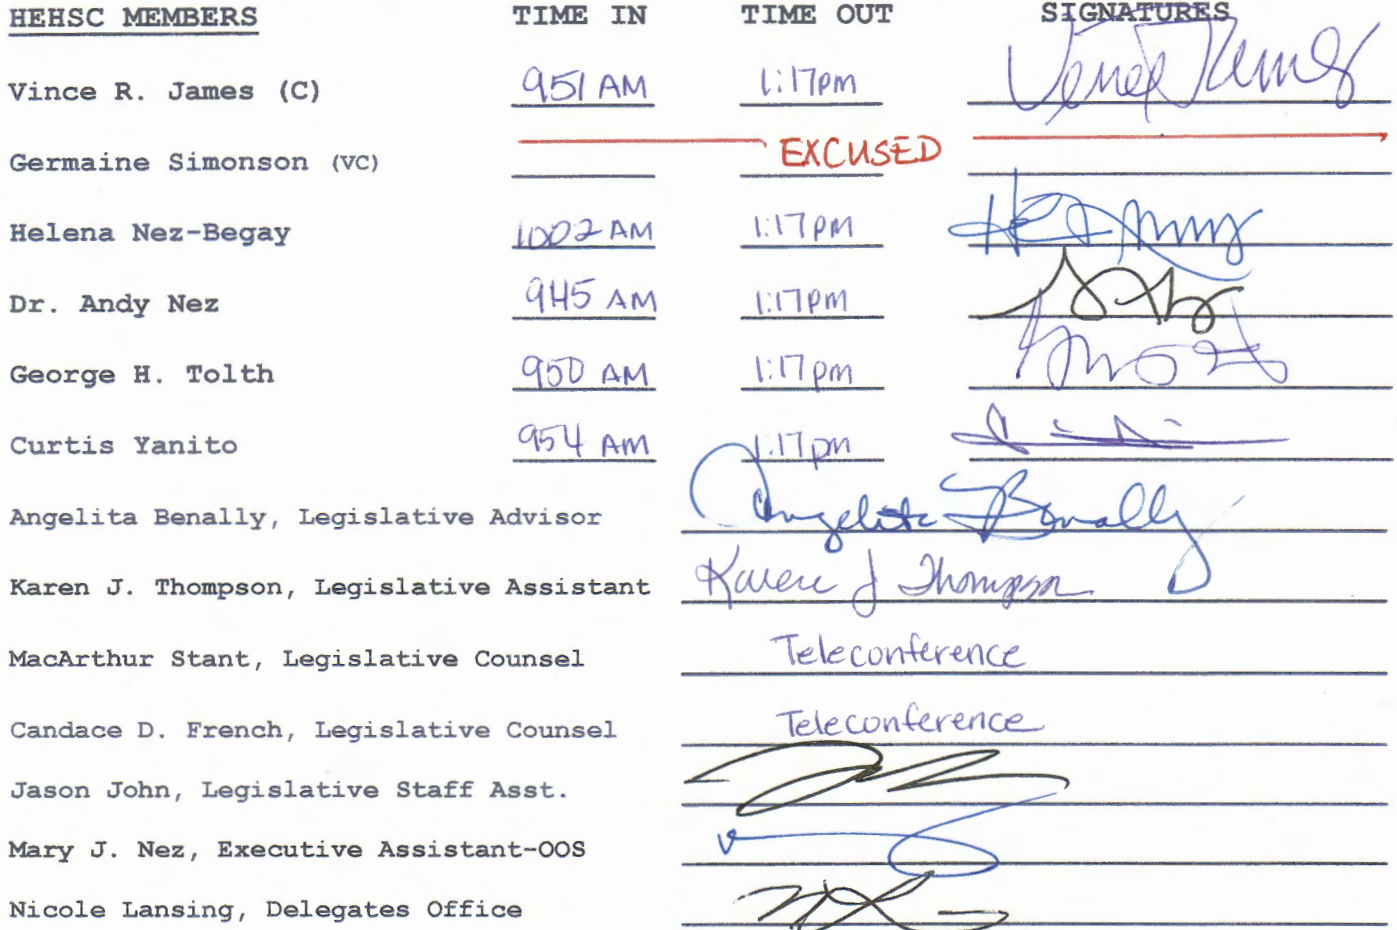 HEHSC MEMBERS TIME IN TIME OUT SIGNATURES
Vince R. James (C) 951 AM 1:17pm
Germaine Simonson (VC) EXCUSED
Helena Nez-Begay 1002 AM 1:17pm
Dr. Andy Nez 945 AM 1:17pm
George H. Tolth 950 AM 1:17pm
Curtis Yanito 954 AM 1:17pm
Angelita Benally, Legislative Advisor Angelita Benally
Karen J. Thompson, Legislative Assistant Karen J Thompson
MacArthur Stant, Legislative Counsel Teleconference
Candace D. French, Legislative Counsel Teleconference
Jason John, Legislative Staff Asst.
Mary J. Nez, Executive Assistant-OOS
Nicole Lansing, Delegates Office